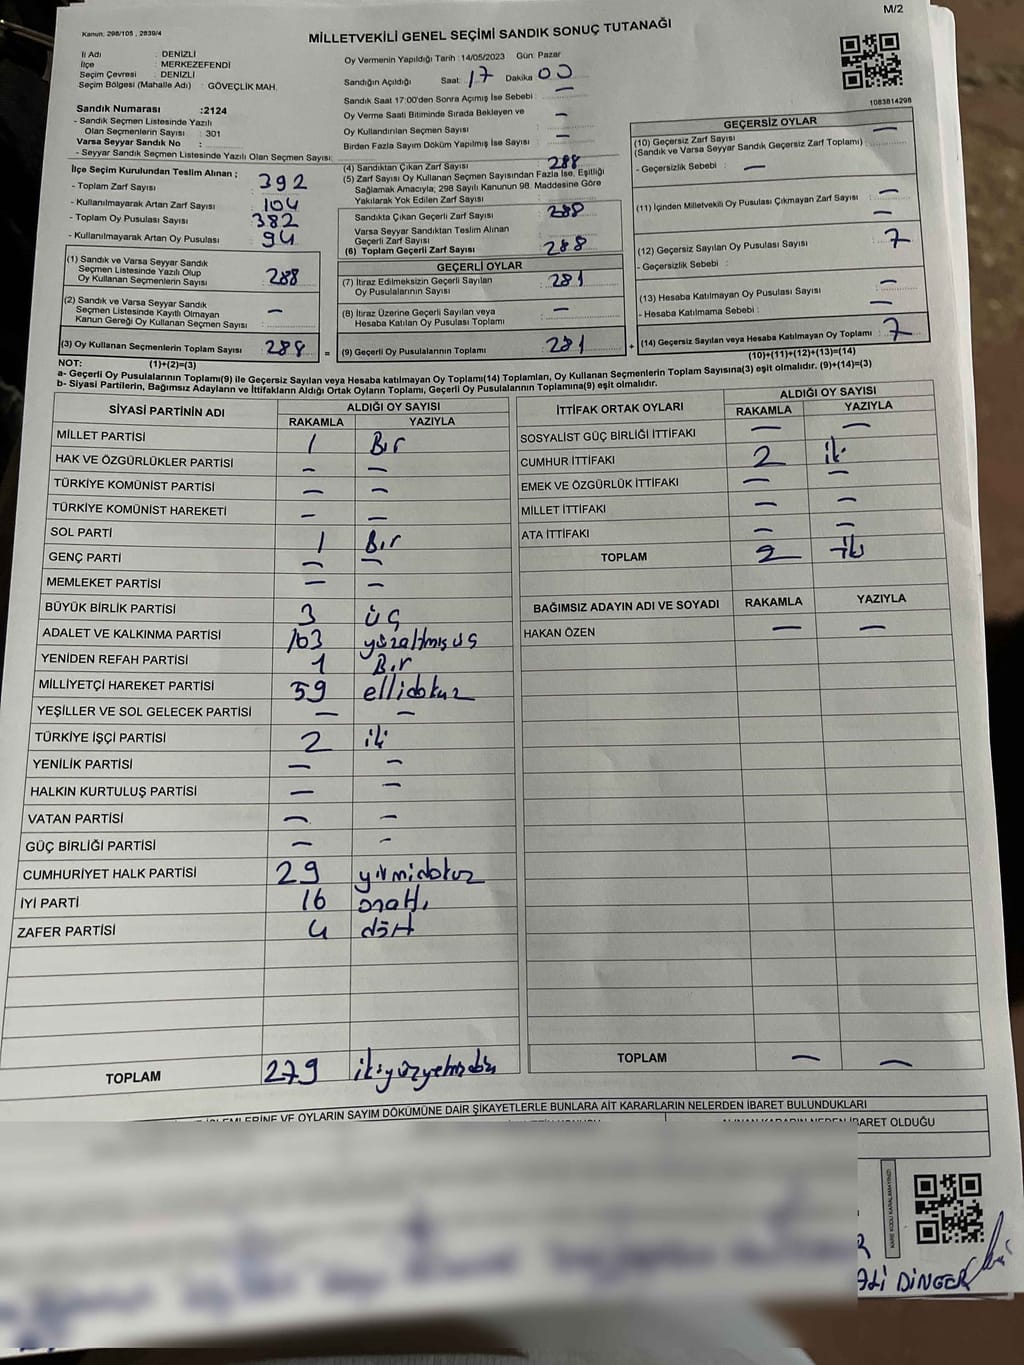 M/2
Kanun: 298/105 , 2839/4
MİLLETVEKİLİ GENEL SEÇİMİ SANDIK SONUÇ TUTANAĞI
İl Adı : DENİZLİ
İlçe : MERKEZEFENDİ
Seçim Çevresi : DENİZLİ
Seçim Bölgesi (Mahalle Adı) : GÖVEÇLİK MAH.
Sandık Numarası :2124
- Sandık Seçmen Listesinde Yazılı
Olan Seçmenlerin Sayısı : 301
Varsa Seyyar Sandık No :
- Seyyar Sandık Seçmen Listesinde Yazılı Olan Seçmen Sayısı:
İlçe Seçim Kurulundan Teslim Alınan ;
- Toplam Zarf Sayısı : 392
- Kullanılmayarak Artan Zarf Sayısı : 104
- Toplam Oy Pusulası Sayısı : 382
- Kullanılmayarak Artan Oy Pusulası : 94
(1) Sandık ve Varsa Seyyar Sandık
Seçmen Listesinde Yazılı Olup
Oy Kullanan Seçmenlerin Sayısı : 288
(2) Sandık ve Varsa Seyyar Sandık
Seçmen Listesinde Kayıtlı Olmayan
Kanun Gereği Oy Kullanan Seçmen Sayısı : –
(3) Oy Kullanan Seçmenlerin Toplam Sayısı : 288
Oy Vermenin Yapıldığı Tarih : 14/05/2023 Gün: Pazar
Sandığın Açıldığı Saat: 17 Dakika 00
Sandık Saat 17:00'den Sonra Açımış İse Sebebi : –
Oy Verme Saati Bitiminde Sırada Bekleyen ve
Oy Kullandırılan Seçmen Sayısı : –
Birden Fazla Sayım Döküm Yapılmış İse Sayısı : –
(4) Sandıktan Çıkan Zarf Sayısı : 288
(5) Zarf Sayısı Oy Kullanan Seçmen Sayısından Fazla İse, Eşitliği
Sağlamak Amacıyla; 298 Sayılı Kanunun 98. Maddesine Göre
Yakılarak Yok Edilen Zarf Sayısı :
Sandıkta Çıkan Geçerli Zarf Sayısı : 288
Varsa Seyyar Sandıktan Teslim Alınan
Geçerli Zarf Sayısı :
(6) Toplam Geçerli Zarf Sayısı : 288
GEÇERLİ OYLAR
(7) İtiraz Edilmeksizin Geçerli Sayılan
Oy Pusulalarının Sayısı : 281
(8) İtiraz Üzerine Geçerli Sayılan veya
Hesaba Katılan Oy Pusulası Toplamı : –
= (9) Geçerli Oy Pusulalarının Toplamı : 281 +
1083814298
GEÇERSİZ OYLAR
(10) Geçersiz Zarf Sayısı : –
(Sandık ve Varsa Seyyar Sandık Geçersiz Zarf Toplamı)
- Geçersizlik Sebebi : –
(11) İçinden Milletvekili Oy Pusulası Çıkmayan Zarf Sayısı : –
–
(12) Geçersiz Sayılan Oy Pusulası Sayısı : 7
- Geçersizlik Sebebi :
(13) Hesaba Katılmayan Oy Pusulası Sayısı : –
- Hesaba Katılmama Sebebi : –
(14) Geçersiz Sayılan veya Hesaba Katılmayan Oy Toplamı : 7
NOT: (1)+(2)=(3) (10)+(11)+(12)+(13)=(14)
a- Geçerli Oy Pusulalarının Toplamı(9) ile Geçersiz Sayılan veya Hesaba katılmayan Oy Toplamı(14) Toplamları, Oy Kullanan Seçmenlerin Toplam Sayısına(3) eşit olmalıdır. (9)+(14)=(3)
b- Siyasi Partilerin, Bağımsız Adayların ve İttifakların Aldığı Ortak Oyların Toplamı, Geçerli Oy Pusulalarının Toplamına(9) eşit olmalıdır.
SİYASİ PARTİNİN ADI ALDIĞI OY SAYISI
RAKAMLA YAZIYLA
MİLLET PARTİSİ 1 Bir
HAK VE ÖZGÜRLÜKLER PARTİSİ – –
TÜRKİYE KOMÜNİST PARTİSİ – –
TÜRKİYE KOMÜNİST HAREKETİ – –
SOL PARTİ 1 Bir
GENÇ PARTİ – –
MEMLEKET PARTİSİ – –
BÜYÜK BİRLİK PARTİSİ 3 üç
ADALET VE KALKINMA PARTİSİ 163 yüzaltmış üç
YENİDEN REFAH PARTİSİ 1 Bir
MİLLİYETÇİ HAREKET PARTİSİ 59 ellidokuz
YEŞİLLER VE SOL GELECEK PARTİSİ – –
TÜRKİYE İŞÇİ PARTİSİ 2 iki
YENİLİK PARTİSİ – –
HALKIN KURTULUŞ PARTİSİ – –
VATAN PARTİSİ – –
GÜÇ BİRLİĞİ PARTİSİ – –
CUMHURİYET HALK PARTİSİ 29 yirmidokuz
İYİ PARTİ 16 onaltı
ZAFER PARTİSİ 4 dört
TOPLAM 279
İTTİFAK ORTAK OYLARI ALDIĞI OY SAYISI
RAKAMLA YAZIYLA
SOSYALİST GÜÇ BİRLİĞİ İTTİFAKI – –
CUMHUR İTTİFAKI 2 iki
EMEK VE ÖZGÜRLÜK İTTİFAKI – –
MİLLET İTTİFAKI – –
ATA İTTİFAKI – –
TOPLAM 2 iki
BAĞIMSIZ ADAYIN ADI VE SOYADI RAKAMLA YAZIYLA
HAKAN ÖZEN – –
TOPLAM – –
İŞLEMLERİNE VE OYLARIN SAYIM DÖKÜMÜNE DAİR ŞİKAYETLERLE BUNLARA AİT KARARLARIN NELERDEN İBARET BULUNDUKLARI
İBARET OLDUĞU
KARE KODU KARALAMAYINIZ!